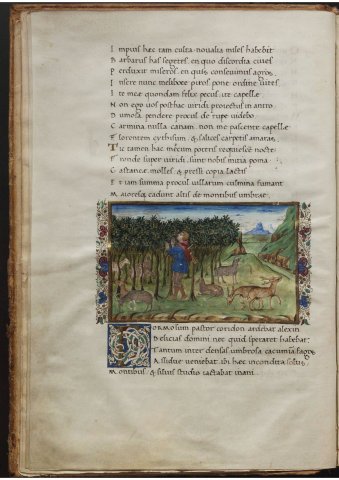 I mpius hæc tam culta noualia miles habebit
B arbarus has segetes. en quo discordia ciues
P erduxit miseros. en quis conseuimus agros.
I nsere nunc melibœe piros pone ordine uites
I te meæ quondam felix pecus. ite capellæ
N on ego uos posthac uiridi proiectus in antro
D umosa pendere procul de rupe uidebo
C armina nulla canam. non me pascente capellæ
F lorentem cythisum & salices carpetis amaras
T u tamen hac mecum poteris requiescere nocte
F ronde super uiridi. sunt nobis mitia poma
C astaneæ molles. & pressi copia lactis
E t iam summa procul uillarum culmina fumant
M aioresq cadunt altis de montibus umbræ
F ORMOSUM pastor coridon ardebat alexin
D elicias domini nec quid speraret habebat
T antum inter densas umbrosa cacumina fagos
A ssidue ueniebat. ibi hæc incondita solus
M ontibus & siluis studio iactabat inani